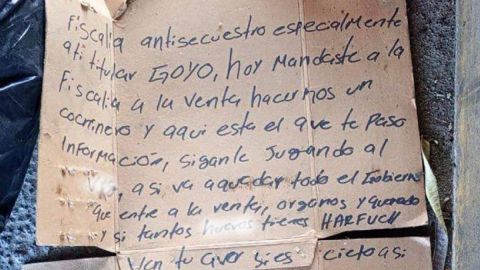 Fiscalia antisecuestro especialmente
ati titular GOYO, hoy Mandaste a la
Fiscalia a la venta hacernos un
cochinero y aqui esta el que te Paso
Información, siganle Jugando al
a si va aquedar todo el Gobierno
que entre a la venta, organos y quemado
y si tantos huevos tienes HARFUCH
Ven tu aver si es cieto asi